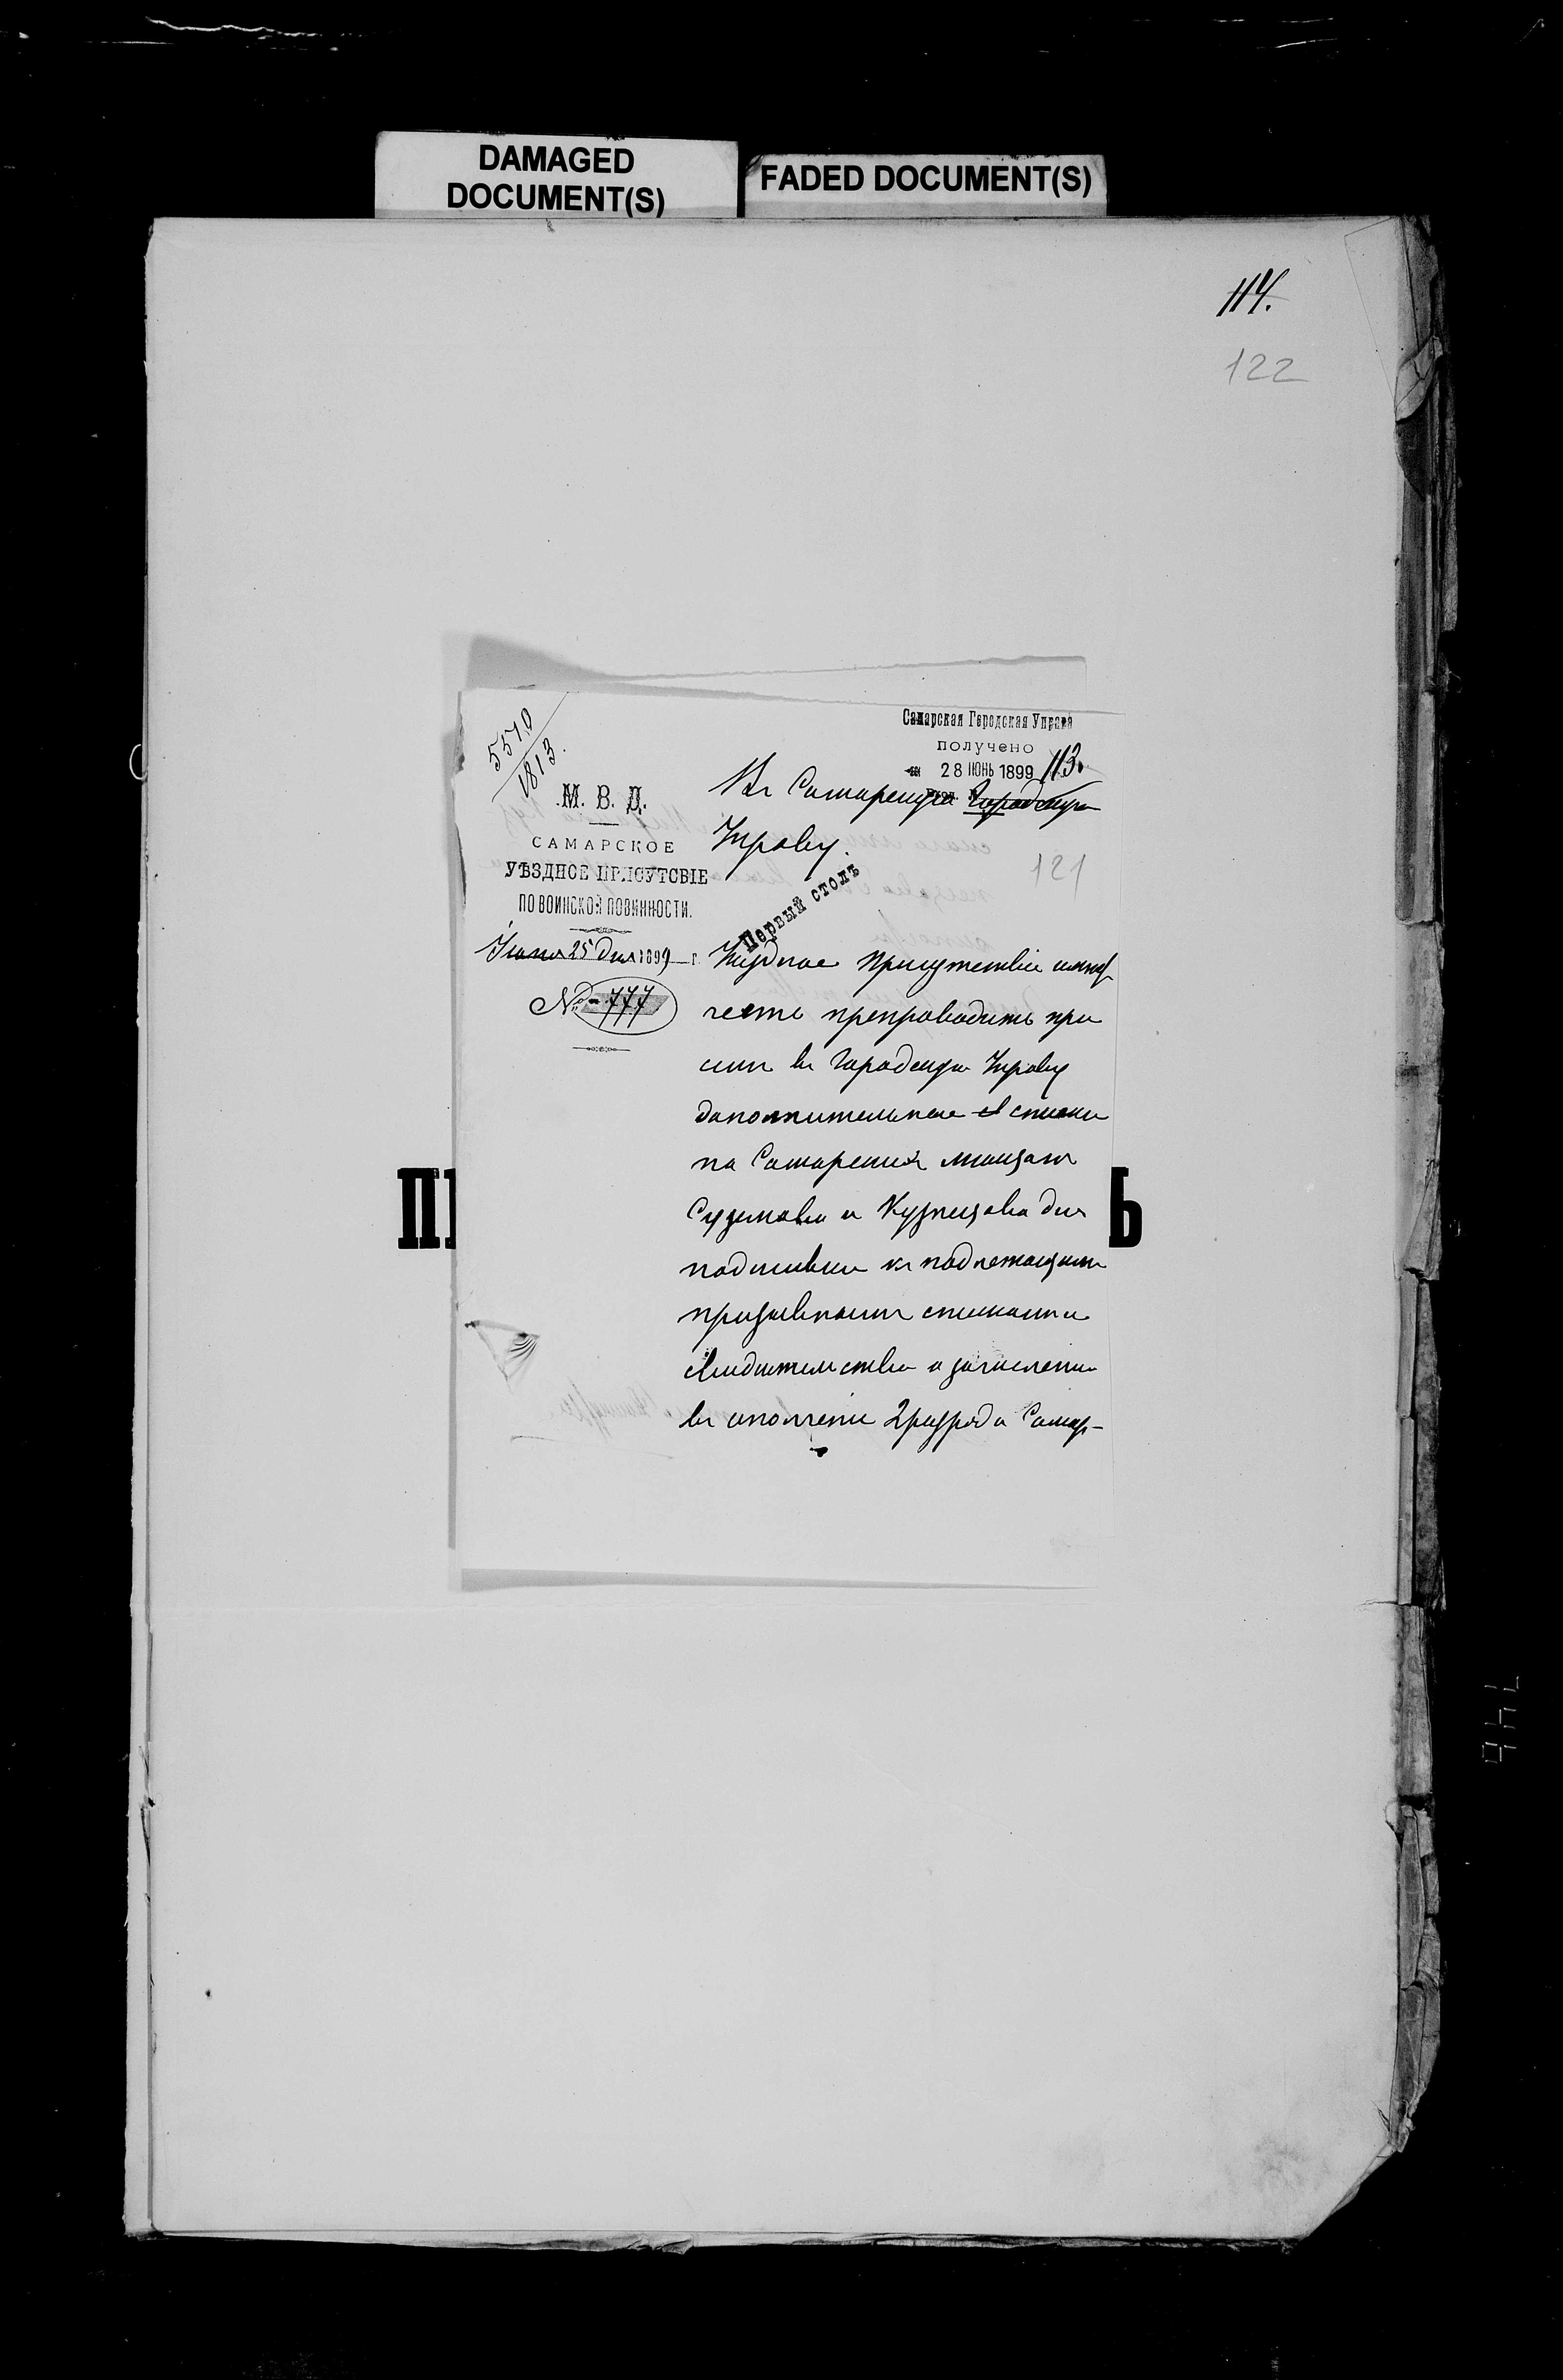 DAMAGED
DOCUMENT(S)
FADED DOCUMENT(S)
114.
122
5510
1813.
Самарская Городская Управа
получено
28 ІЮНЬ 1899
113.
М. В. Д.
САМАРСКОЕ
УѢЗДНОЕ ПРИСУТСВІЕ
ПО ВОИНСКОЙ ПОВИННОСТИ.
Іюня 25 дня 1899 г.
№ 777
Въ Самарскую Городскую
Управу.
121
Первый столъ
Уѣздное Присутствіе имѣетъ
честь препроводить при
семъ въ Городскую Управу
дополнительные списки
на Самарскихъ мѣщанъ
и Кузнецова для
подшивки къ подлежащимъ
призывнымъ спискамъ и
свидѣтельство о зачисленіи
въ ополченіе 2 разряда Самар-
П
Ь